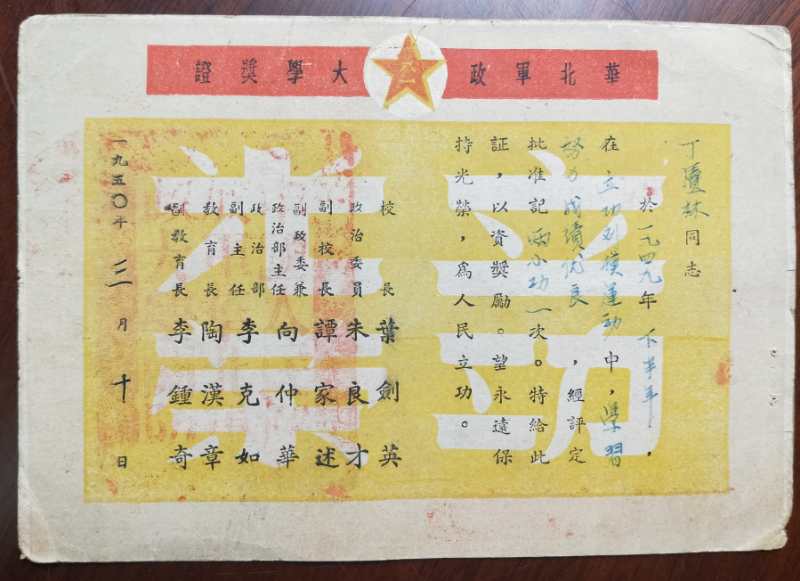 華北軍政大學獎證
八一
立功光榮
丁同志
於一九四九年下半年,
在立功列模運動中,學習
努力成績優良,經評定
批准記兩小功一次。特給此
証,以資獎勵。望永遠保
持光榮,為人民立功。
校長葉劍英
政治委員朱良才
副校長譚家述
副政委兼政治部主任向仲華
政治部副主任李克如
教育長陶漢章
副教育長李鍾奇
一九五〇年三月十日